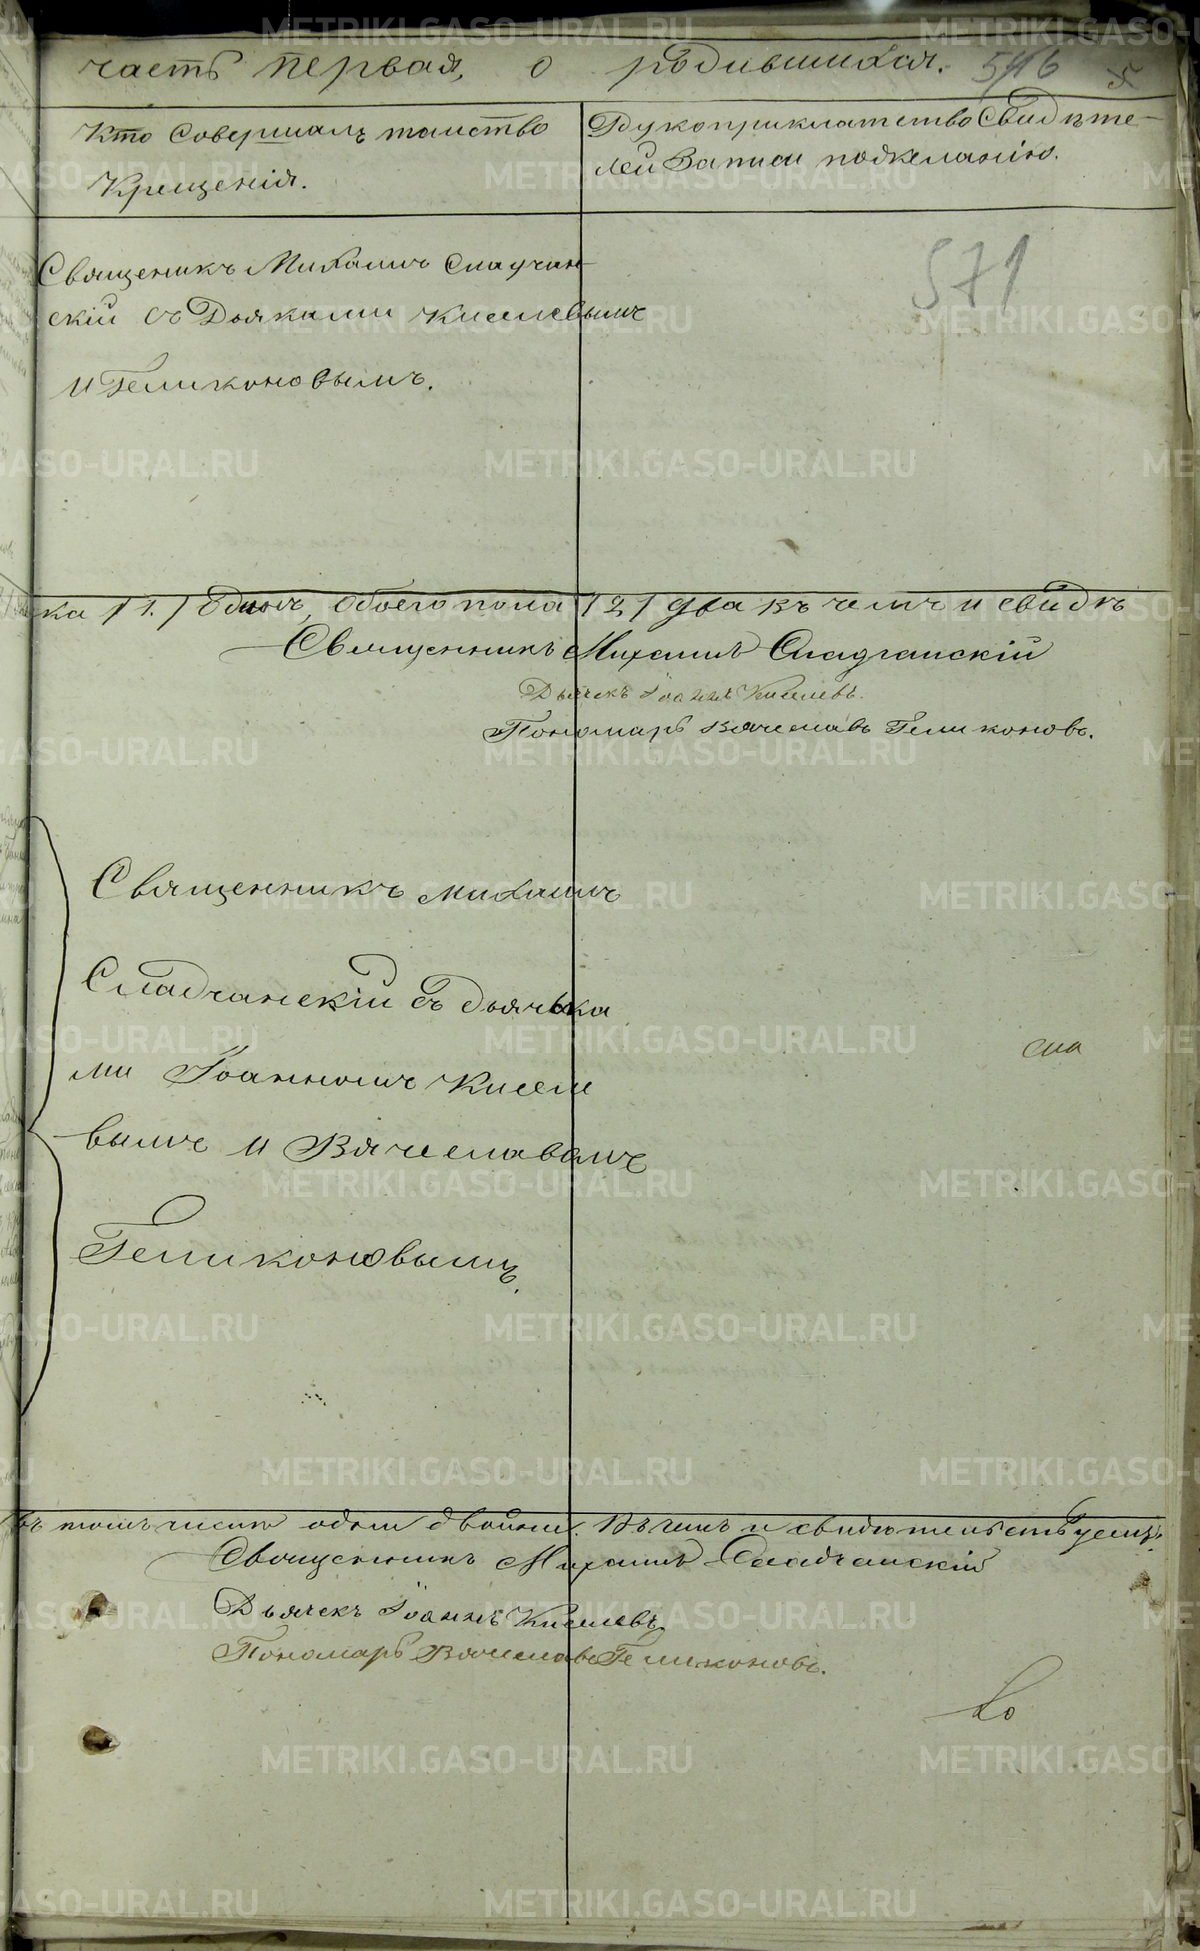 часть первая, о родившихся. 546
Кто совершалъ таинство
Крещенія.
Рукоприкладство свидѣте-
лей записи пожеланію.
571
Священикъ Михаилъ Сладчан-
скій съ Дьяками Киселевымъ
и Геликоновымъ.
ка /1./ Одинъ, Обоего пола /2/ два въ чемъ и свидѣ
Священникъ Михаилъ Сладчанскій
Дьячекъ Іоаннъ Киселевъ.
Пономарь Вячеславъ Геликоновъ.
Священникъ Михаилъ
Сладчанскій съ дьячька
ми Іоанномъ Кисели
вымъ и Вячеславомъ
Геликоновымъ.
сла
въ томъ числѣ одни двойни. Въ чемъ и свидѣтельствуемъ:
Священникъ Михаилъ Сладчанскій
Дьячекъ Іоаннъ Киселевъ
Пономарь Вячеславъ Геликоновъ.
во
METRIKI.GASO-URAL.RU